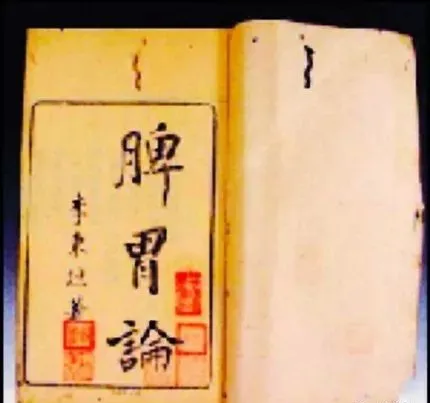 脾胃論
李東垣著